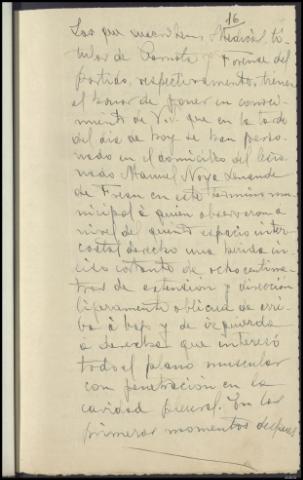 16
Los que suscriben, Médicos ti-
tular de Carnota y Forense del
partido, respectivamente, tienen
el honor de poner en conoci-
miento de V.S. que en la tarde
del dia de hoy se han perso-
nado en el domicilio del
Manuel Noya
de en este termino mu-
nicipal á quien observaron a
nivel del quinto espacio inter-
costal derecho una herida in-
ciso cortante de ocho centime-
tros de extention y dirección
ligeramente oblicua de arri-
ba á bajo y de izquierda
a derecha que interesó
todo el plano muscular
con penetración en la
cavidad pleural. En los
primeros momentos despues